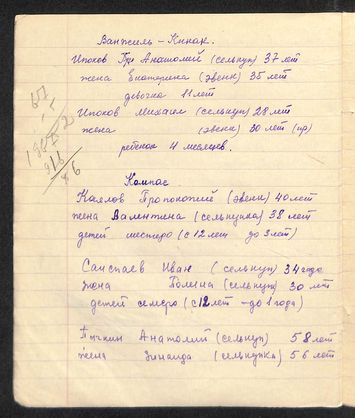 Ванжиль – Кынак.
Ипоков Анатолий (селькуп) 37 лет
жена Екатерина (эвенк) 35 лет
девочка 11 лет
Ипоков Михаил (селькуп) 28 лет
жена (эвенк) 30 лет
ребенок 4 месяцев.
Компас
Каялов Прокопий (эвенк) 40 лет
жена Валентина (селькупка) 38 лет
детей шестеро (с 12 лет до 3 лет)
Саиспаев Иван (селькуп) 34 года
жена (селькуп) 30 лет
детей семеро (с 12 лет – до 1 года)
Анатолий (селькуп) 58 лет
жена Зинаида (селькупка) 56 лет